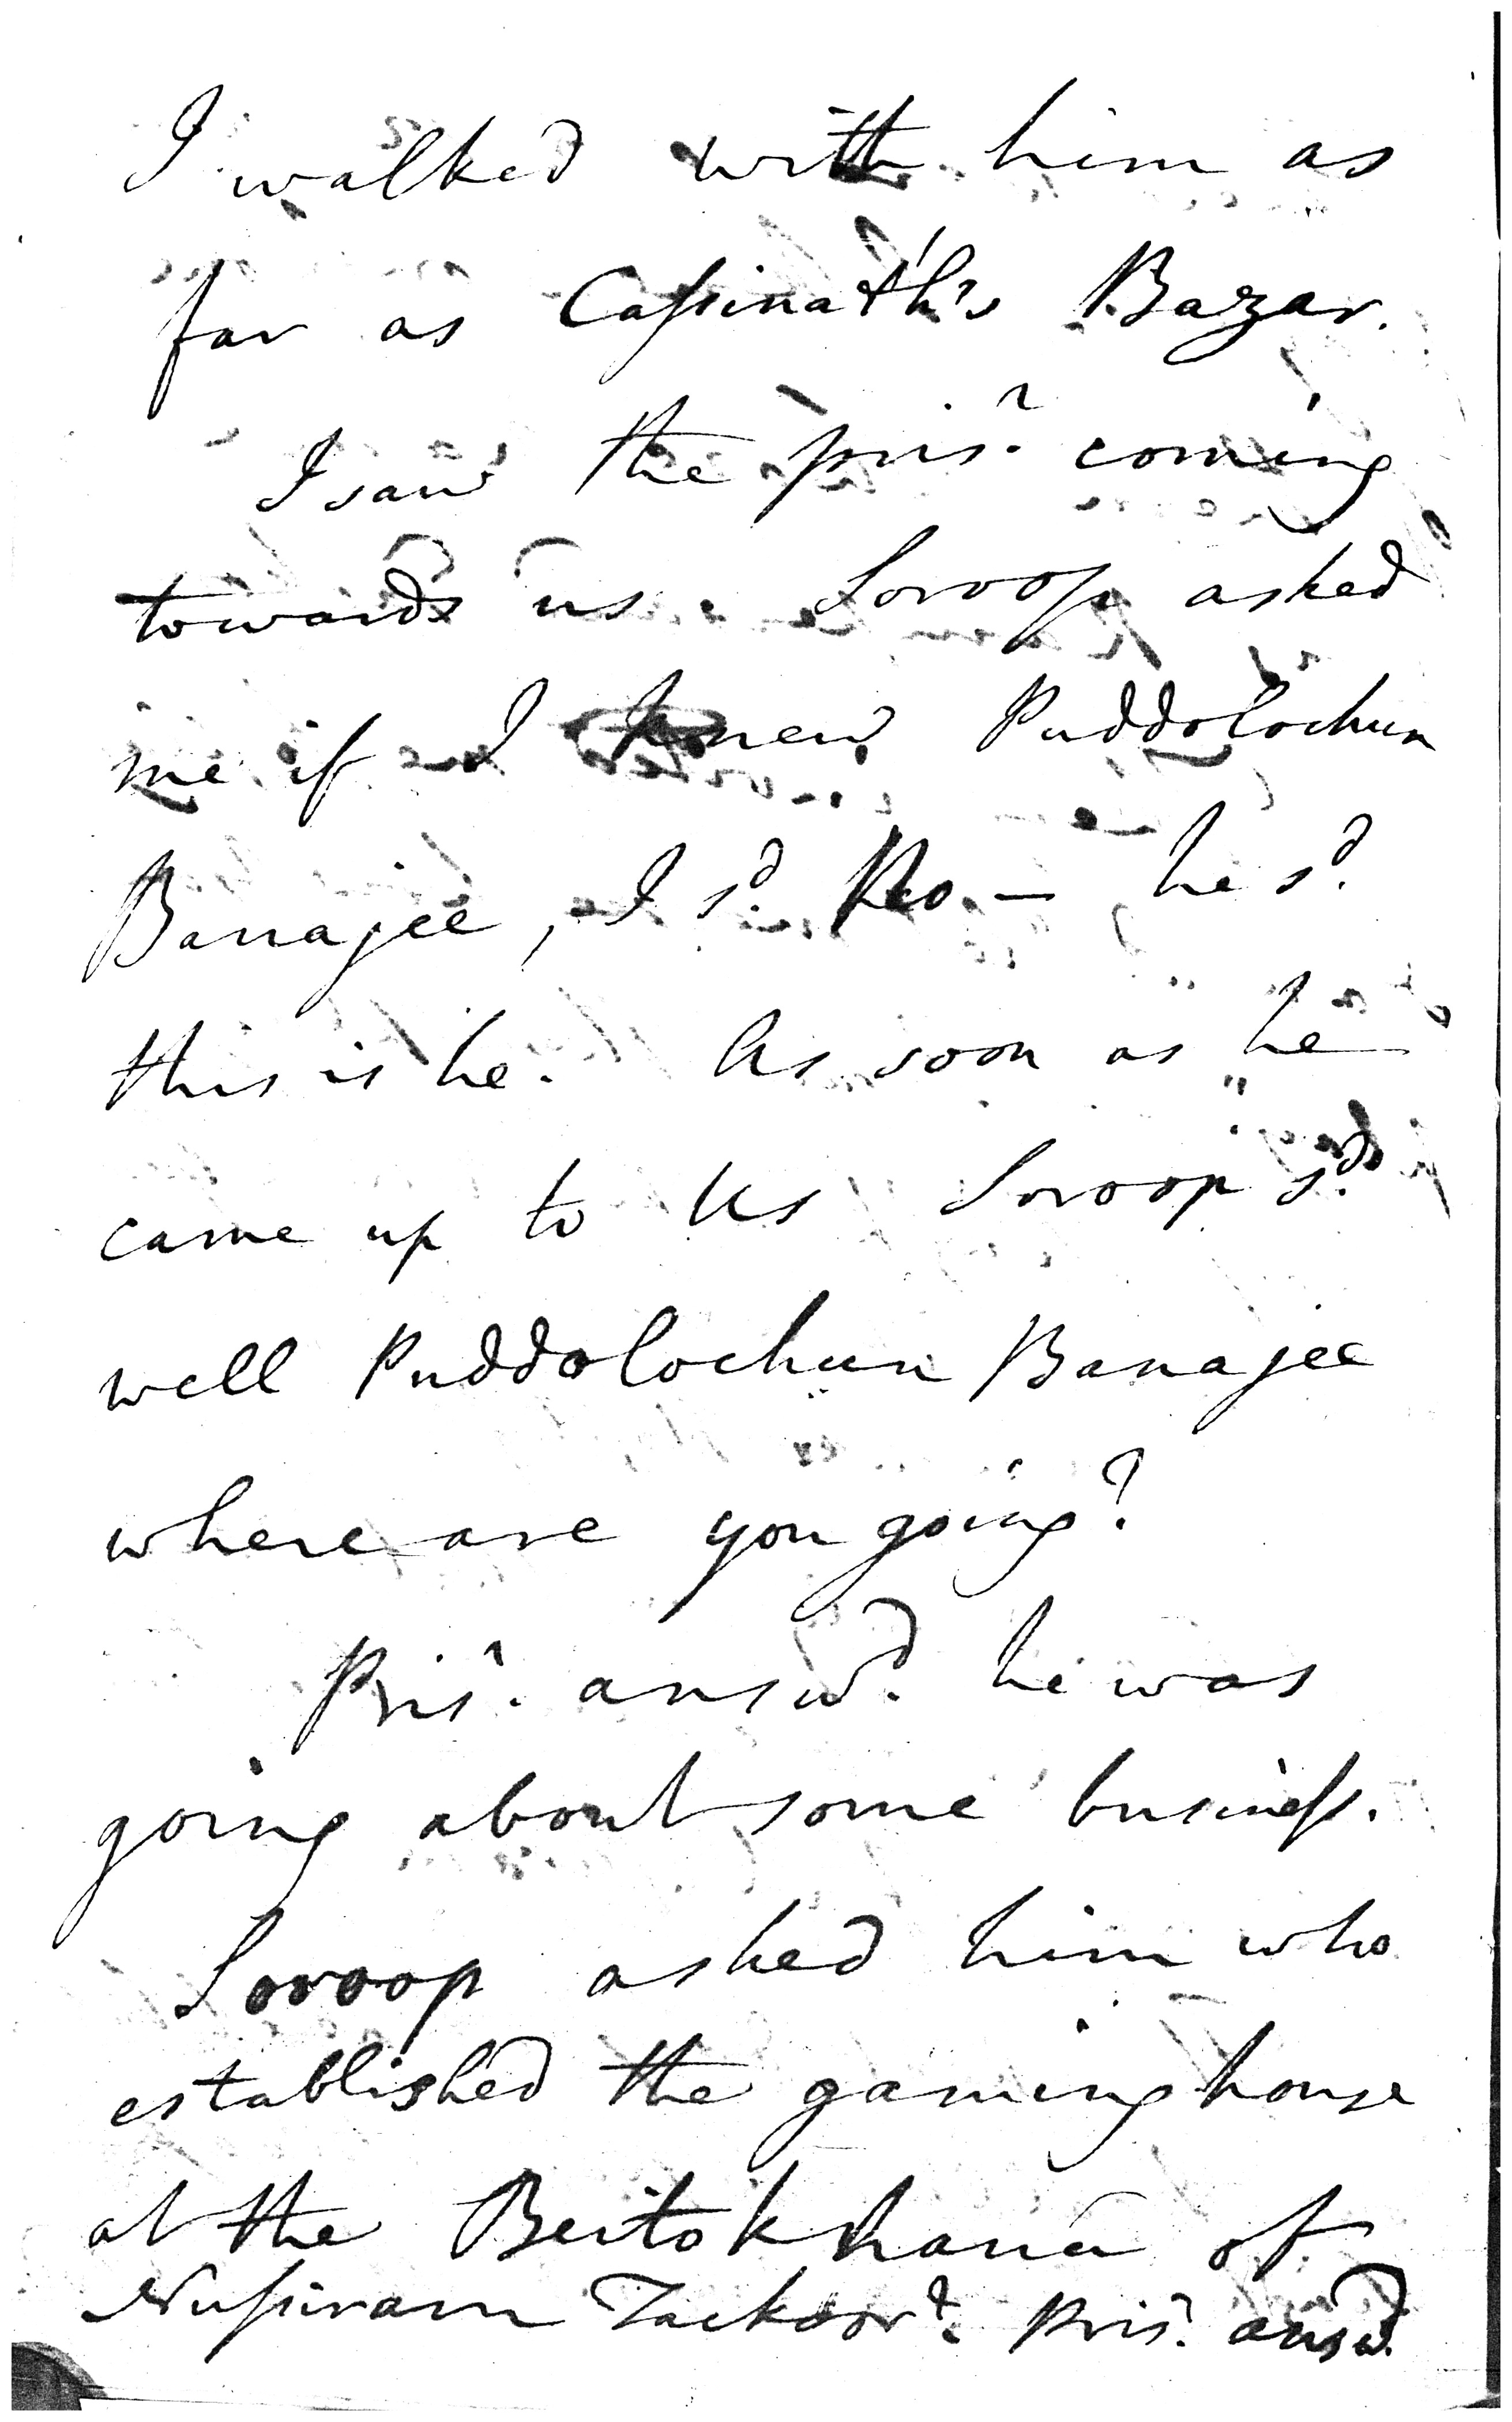 I walked with him as
far as Cassinath's Bazar.
I saw the pris.r coming
towards us. Soroop asked
me if I knew Puddolochun
Banajee, I s.d No — he s.d
this is he. As soon as he
came up to us Soroop s.d
well Puddolochun Banajee
where are you going?
Pris.r answ.d he was
going about some business.
Soroop asked him who
established the gaming house
at the Beitokhana of
Nussiram Tackoor? Pris.r answ.d